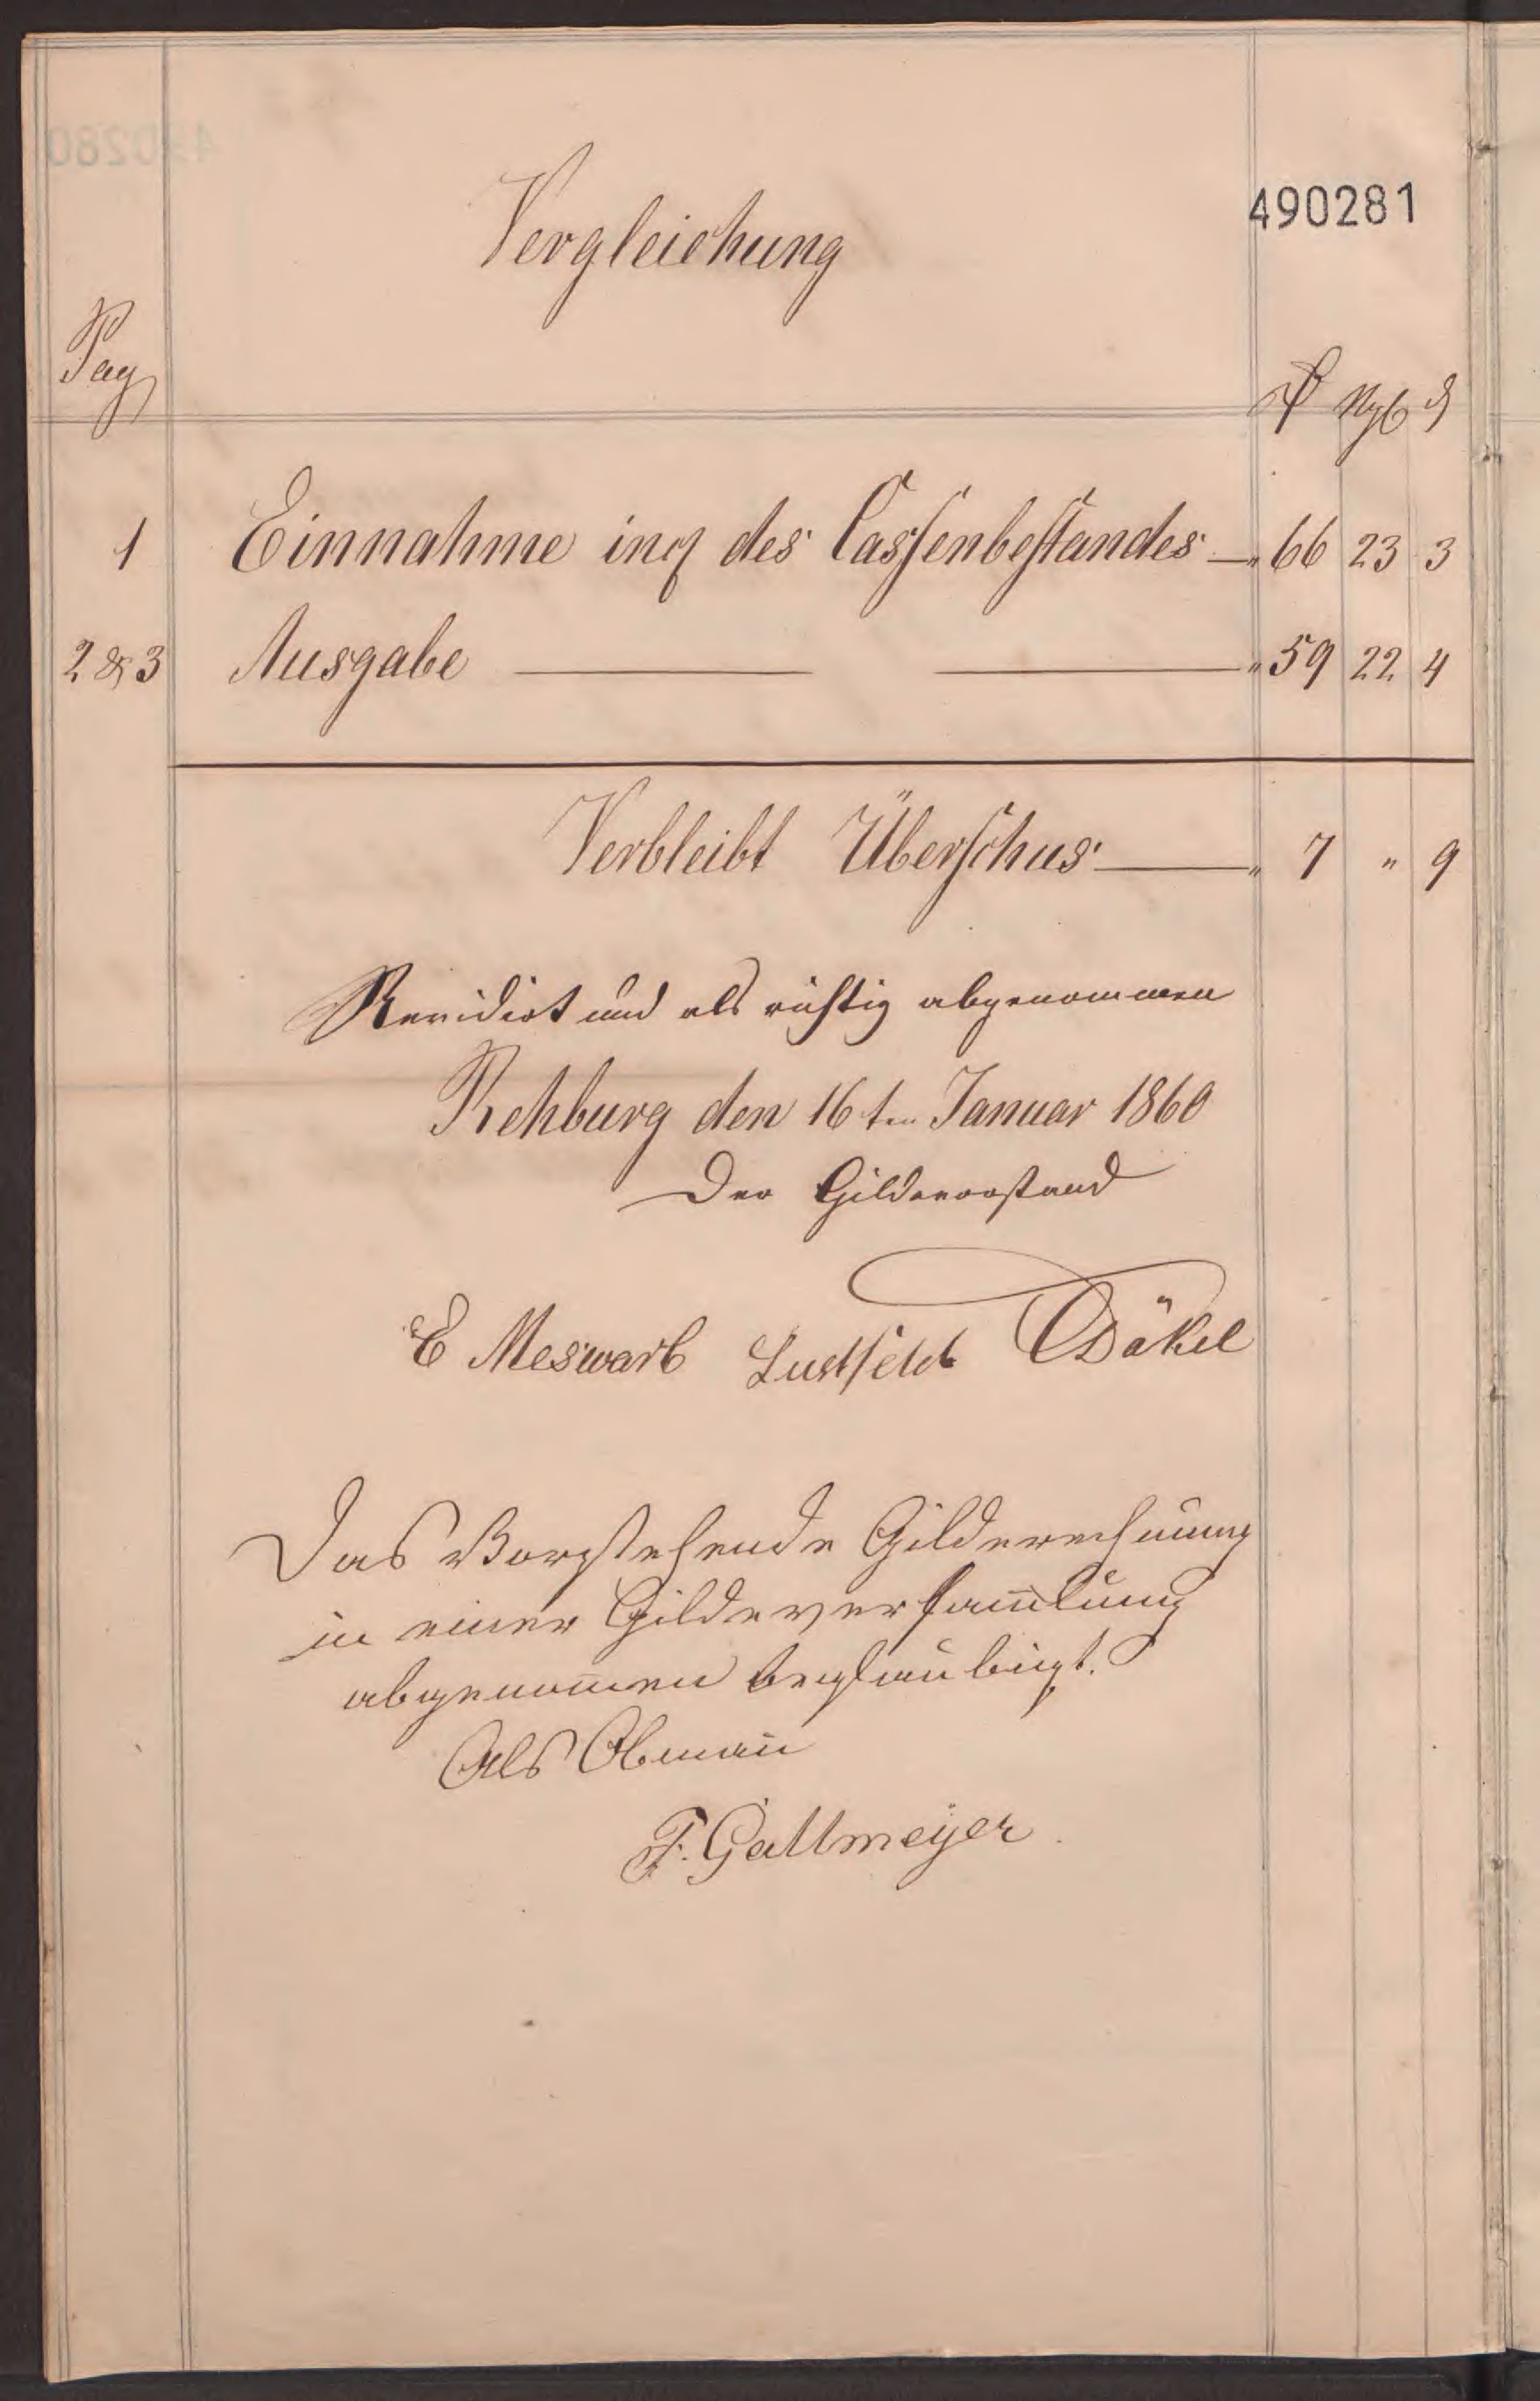 490281
Vergleichung
Pag
₰ Ngb ₰
1 Einnahme incl des Cassenbestandes — " 66 23 3
2 & 3 Ausgabe — — " 59 22 4
Verbleibt Überschus — " 7 " 9
Revidirt und als richtig abgenommen
Rehburg den 16ten Januar 1860
Der Gildevorstand
E Meswarb Lustfeld Däkel
Das Vorstehende Gilderechnung
in einer Gildeversam̅lung
abgenom̅en beglaubigt.
Als Obman̅
F. Gallmeyer